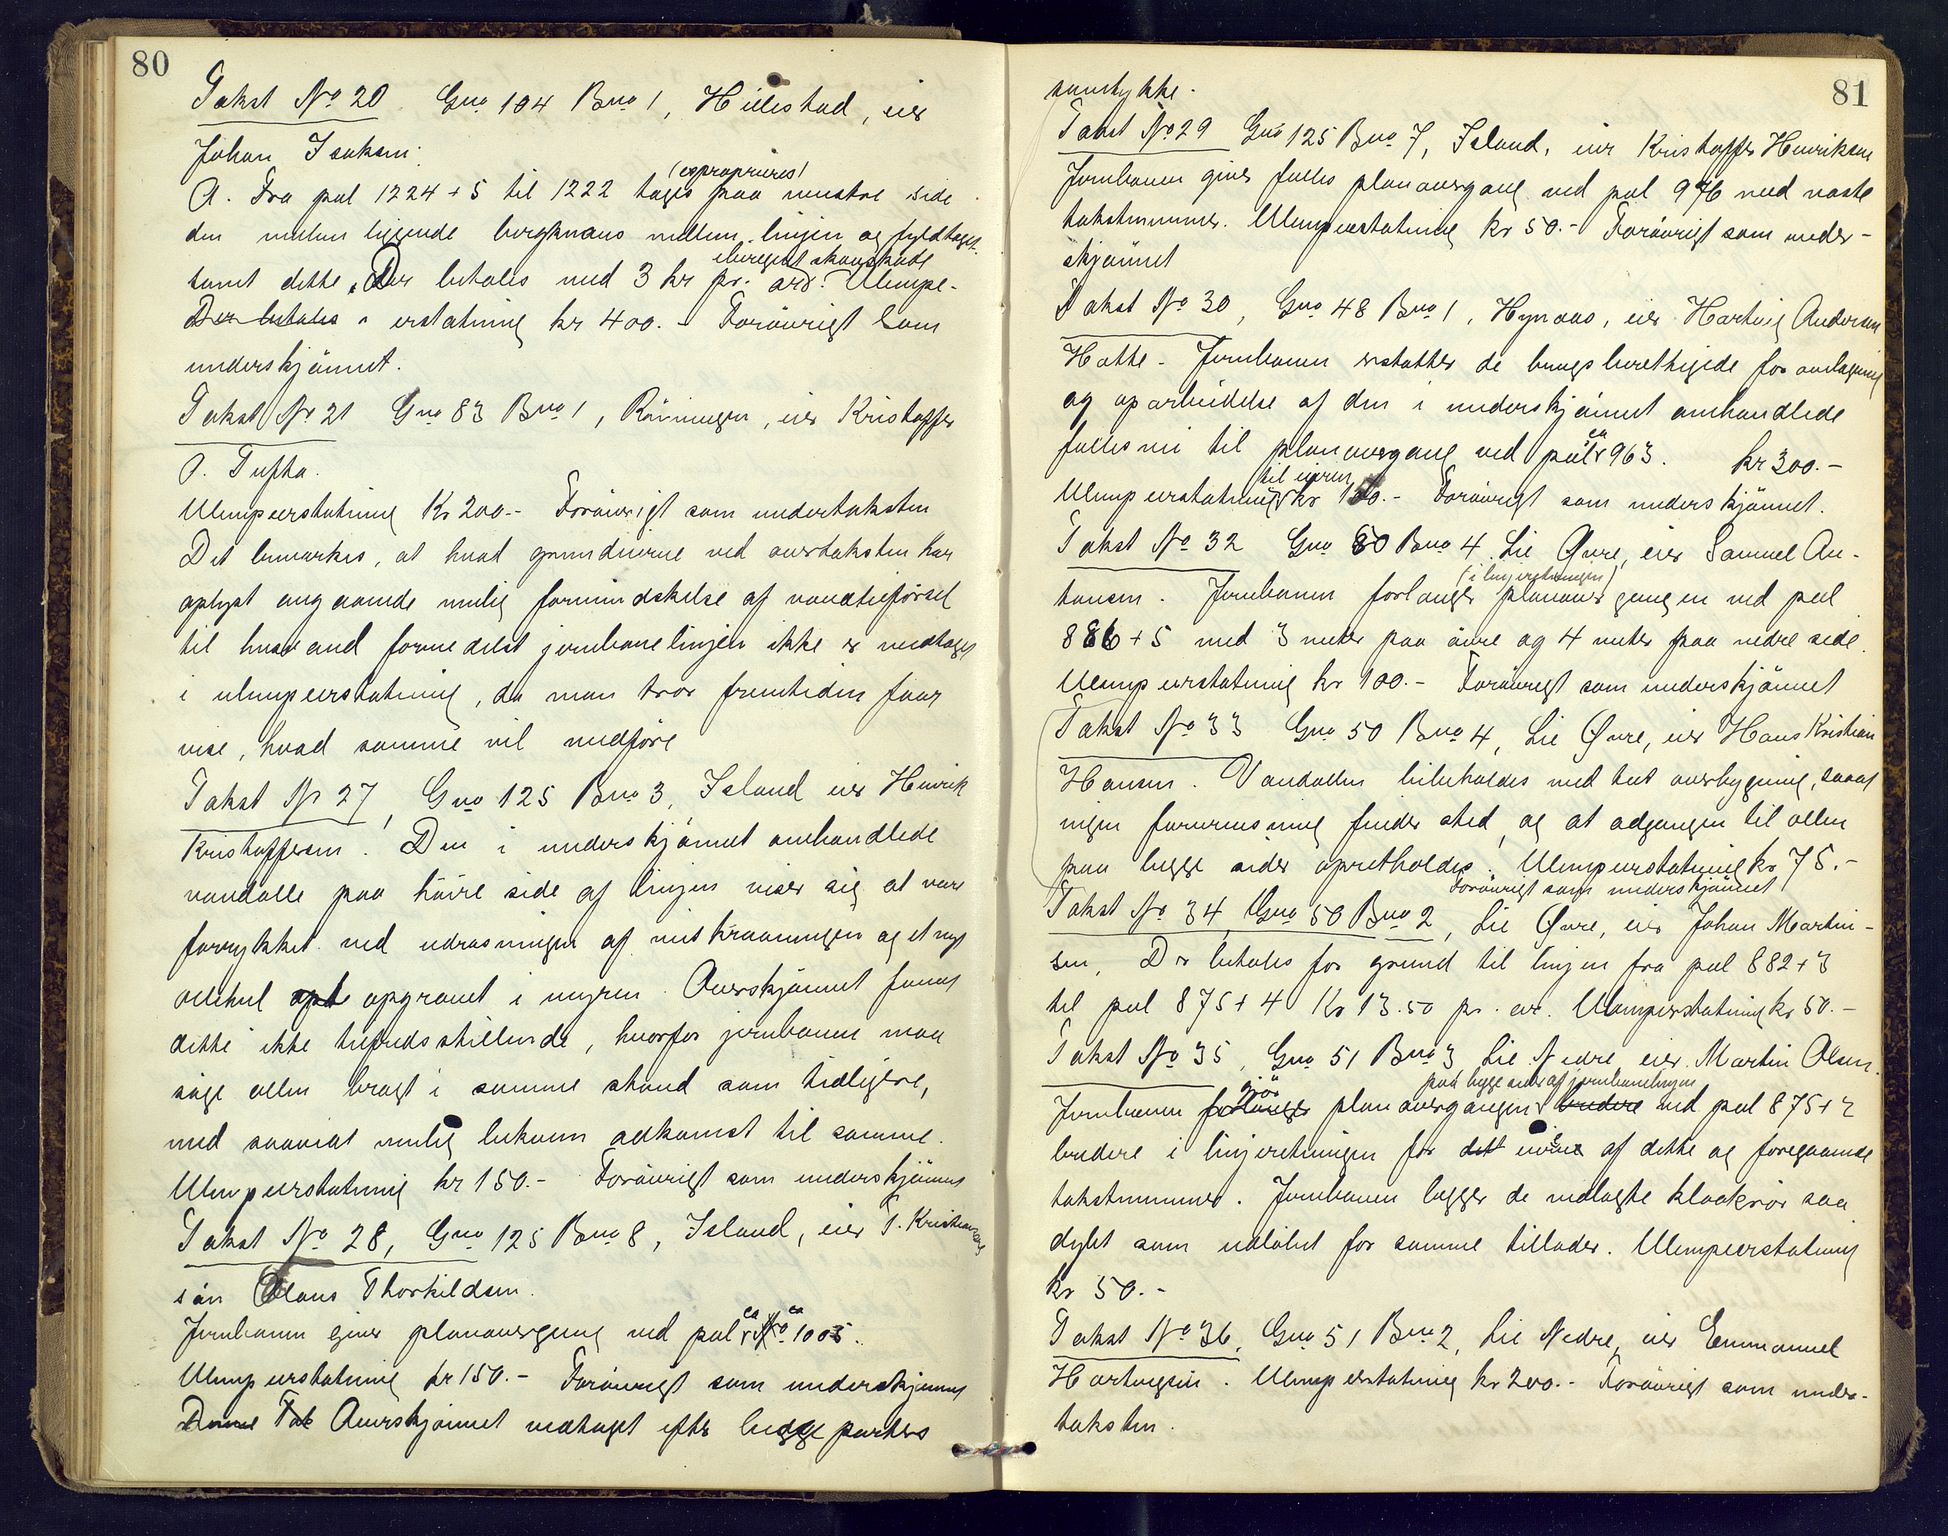 80
Takst No 20. Gno 104 Bno 1, Hillestad, eier
Johan Isaksen.
(exproprieres)
A. Fra pal 1224 + 5 til 1222 tages paa venstre side
den mellem liggende bergknaus mellem linjen og fyldtaget
iberegnet skovskade
samt dette. Der betales med 3 kr pr. ar. Ulempe-
Der betales erstatning kr 400.- Forøvrigt som
underskjønnet.
Takst No 21 Gno 83 Bno 1, Rønningen, eier Kristoffer
O. Tufta.
Ulempeerstatning Kr 200.- Forøvrigt som undertaksten
Det bemærkes, at hvad grundeierne ved overtaksten har
oplyst angaaende mulig formindskelse af vandtilførsel
til husvand formedelst jernbanelinjen ikke er medtaget
i ulempeerstatning, da man tror fremtiden faar
vise, hvad samme vil medføre
Takst No 27, Gno 125 Bno 3, Island eier Henrik
Kristoffersen. Den i underskjønnet omhandlede
vandolle paa høire side af linjen viser sig at være
forrykket ved udrasningen af nedskraaningen og et nyt
ollehul opt opgravet i myren. Overskjønnet fandt
dette ikke tilfredsstillende, hvorfor jernbanen maa
søge ollen bragt i samme stand som tidligere,
med saavidt mulig bekvem adkomst til samme.
Ulempeerstatning kr 150.- Forøvrigt som underskjønnet
Takst No 28, Gno 125 Bno 8, Island, eier T. Kristians
søn Olaus Thorkildsen.
Jernbanen giver planovergang ved pal ca No ca 1005.
Ulempeerstatning kr 150.- Forøvrigt som underskjønnet
Denne Tak Overskjønnet vedtaget efter begge parters
81
samtykke.
Takst No 29 Gno 125 Bno 7, Island, eier Kristoffer Henriksen
Jernbanen giver fælles planovergang ved pal 976 med næste
takstnummer. Ulempeerstatning kr 50.- Forøvrigt som under-
skjønnet
Takst No 30, Gno 48 Bno 1, Hynaas, eier Hartvig Andersen
Hotte. Jernbanen erstatter de brugsberettigede for omlægning
og oparbeidelse af den i underskjønnet omhandlede
fællesvei til planovergang ved pal ca 963. kr 300.-
til eieren
Ulempeerstatning kr 150.- Forøvrigt som underskjønnet.
Takst No 32 Gno 50 Bno 4. Lie Øvre, eier Samuel An-
(i linjeretningen)
tonsen. Jernbanen forlænger planovergangen ved pal
886 + 5 med 3 meter paa øvre og 4 meter paa nedre side.
Ulempeerstatning kr 100.- Forøvrigt som underskjønnet
Takst No 33 Gno 50 Bno 4, Lie Øvre, eier Hans Kristian
Hansen. Vandollen bibeholdes med tæt overbygning, saaat
ingen forurensning finder sted, og at adgangen til ollen
paa begge sider opretholdes. Ulempeerstatning kr 75.-
Forøvrigt som underskjønnet
Takst No 34, Gno 50 Bno 2, Lie Øvre, eier Johan Martin-
sen. Der betales for grund til linjen fra pal 882 + 3
til pal 875 + 4 Kr 13.50 pr. ar. Ulempeerstatning kr 50.-
Takst No 35, Gno 51 Bno 3 Lie Nedre, eier Martin Olsen.
gjør paa begge sider af jernbanelinjen
Jernbanen forlænger planovergangen bredere ved pal 875 + 2
bredere i linjeretningen for dett eierne af dette og foregaaende
takstnummer. Jernbanen lægger de nedlagte kloakrør saa
dybt som udløbet for samme tillader. Ulempeerstatning
kr 50.-
Takst No 36, Gno 51 Bno 2, Lie Nedre, eier Emmanuel
Hartvigsen. Ulempeerstatning kr 200.- Forøvrigt som under-
taksten.